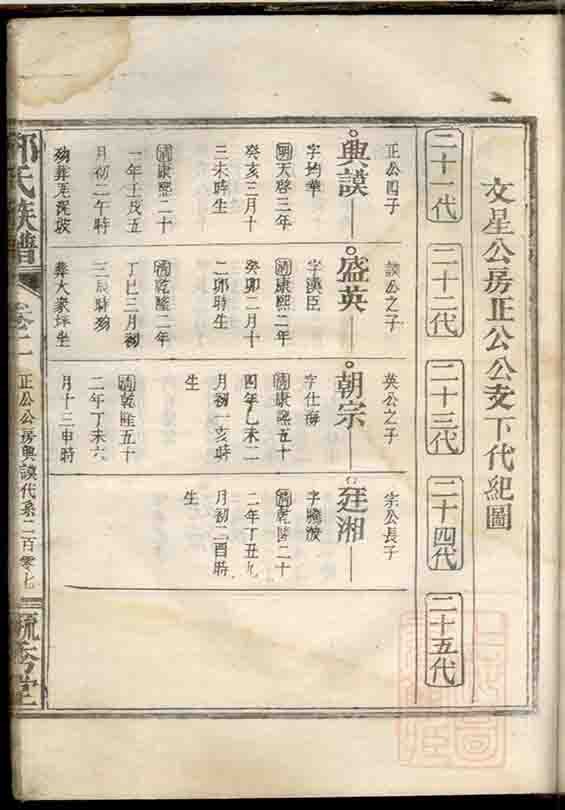 文星公房正公公支下代紀圖
二十一代
二十二代
二十三代
二十四代
二十五代
正公四子
興謨
字均華
明天啓三年
癸亥三月十
三未時生
清康熙二十
一年壬戌五
月初二午時
歿葬
談公之子
盛英
字漢臣
清康熙二年
癸卯二月十
二卯時生
清乾隆二年
丁巳三月初
三辰時歿
葬大衆坪坐
英公之子
朝宗
字仕海
清康熙五十
四年乙未二
月初一亥時
生
清乾隆五十
二年丁未六
月十三申時
宗公長子
廷湘
字曉波
清乾隆二十
二年丁丑九
月初二酉時
生
氏族譜
卷二
正公公房興謨代系二百零七